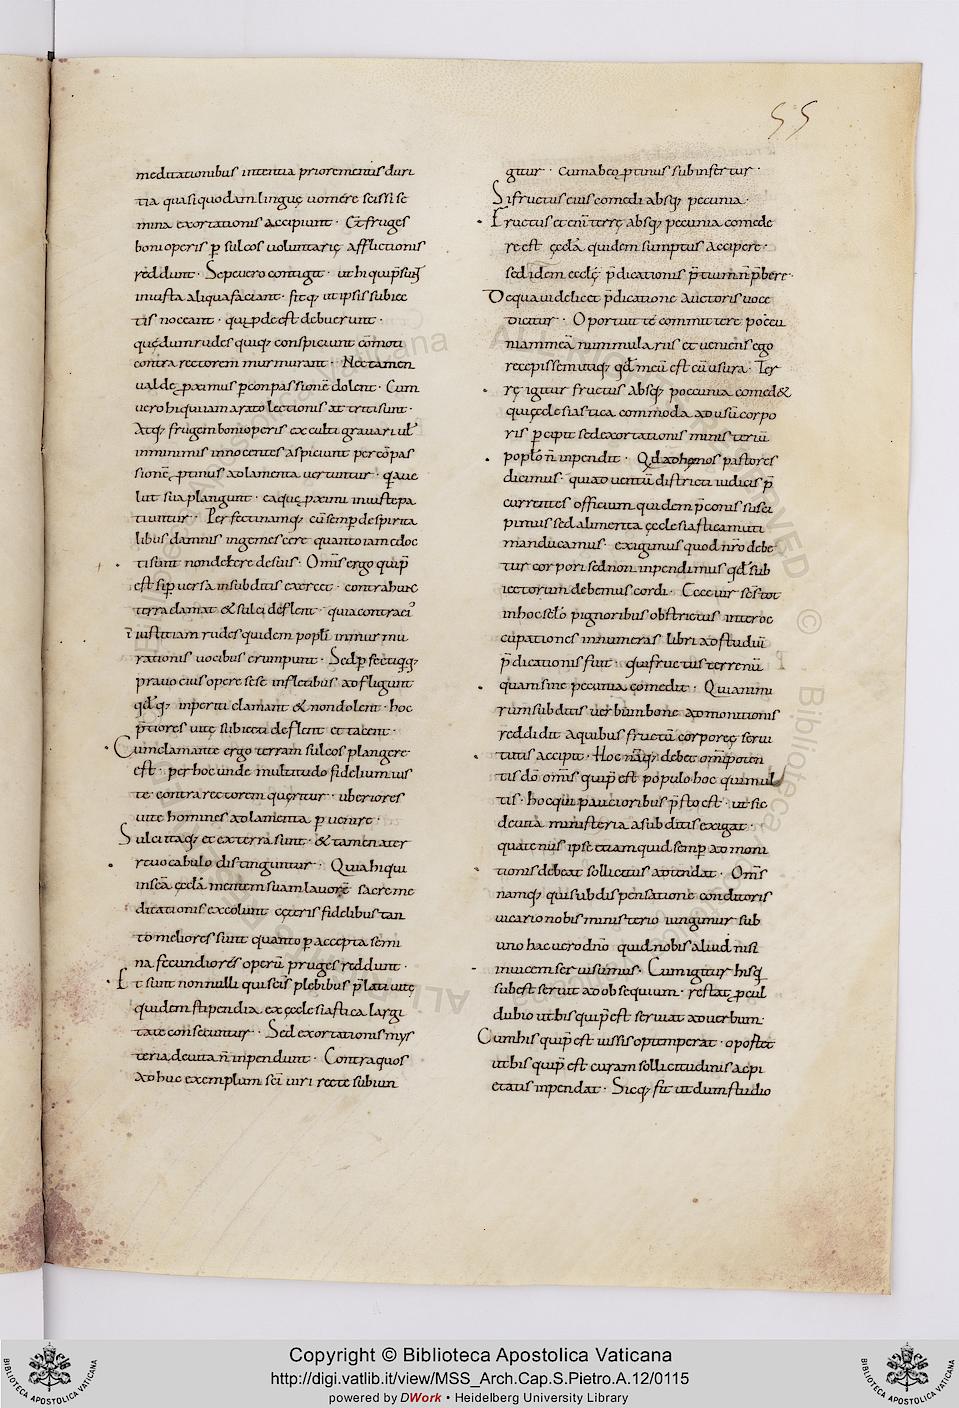 55
meditationibus intenta priorementis duri
tia quasi quodam linguę uomere scissi se
mina exortationis accipiunt · Et fruges
boni operis ꝑ sulcos uoluntarię afflictionis
reddunt · Sepe uero contigit · ut hi qui p̄sunt
iniusta aliqua faciant · fitq; ut ipsis subiec
tis noceant · qui ꝓdeesse debuerunt ·
quę dum rudes quiq; conspiciunt cōmoti
contra rectorem murmurant · Nec tamen
ualde ꝓximus ꝑ conpassionē dolent · Cum
uero hi qui iam arato lectionis at triti sunt ·
Atq; frugem boni operis exculti grauari uł
in minimis innocentes aspiciunt per cōpas
sionē ꝓtinus ad lamenta uertuntur · q̄ ue
lut sua plangunt · eaque ꝓximi iniuste pa
tiuntur · Perfecti namq; cū semꝑ de spirita
libus damnis ingemescere quanto iam edoc
ti sunt non dolere de suis · Omīs ergo qui p̄
est si ꝑuersa in subditis exercet · contra hunc
terra clamat & sulci deflent · quia contra ei'
iniustitiam rudes quidem popłi in murmu
rationis uocibus erumpunt · Sed ꝑfecti q̄q;
prauo eius opere sese in fletibus adfligunt
qd̄q; inperiti clamant & non dolent · hoc
p̄tiores uitę subiecti deflent et tacent ·
Cum clamante ergo terram sulcos plangere
est · per hoc unde multitudo fidelium ius
te contra rectorem queritur · uberiores
uite homines ad lamenta ꝑuenire ·
Sulci itaq; et ex terra sunt · & tamen a ter
re uocabulo distinguntur · Quia hi qui
in scā ęcclā mentem suam lauorē sacre me
ditationis excolunt cęteris fidelibus tan
to meliores sunt quanto ꝑ accepta semi
na fecundiorés operū pruges reddunt ·
Et sunt nonnulli qui scīs plebibus p̄lati uitę
quidem stipendia ex ęcclesiastica largi
tate consecuntur · Sed exortationis mys
teria deuita n̄ inpendunt · Contra quos
adhuc exemplum scī uiri recte subiun
gitur · cum ab eo ꝓtinus subinsertur ·
Si fructus eius comedi absq; pecunia ·
Fructus etenī terrę absq; pecunia comede
re est ęcclā quidem sumptus accipere ·
sed idem ecclę p̄dicationis p̄tium n̄ p̄bere ·
De qua uidelicet p̄dicatione auctoris uoce
dicitur · Oportuit té committere peccu
niam meā nummulariis et ueniens ego
recepissem utiq; qd̄ meū est cū usura · Ter
rę igitur fructus absq; peccunia comed&
qui ęcclesiastica commoda ad usū corpo
ris ꝑcipit sed exortationis ministeriū
popło n̄ inpendit · Qd ad hęc nos pastores
dicimus · qui aduentū districti iudicis p̄
currentes officium quidem p̄conis susci
pimus sed alimenta ęcclesiastica muti
manducamus · exigimus quod nr̄o debe
tur corpori sed non inpendimus qd̄ sub
iectorum debemus cordi · Ecce uir scs̄ tot
in hoc sclo pignoribus obstrictus inter oc
cupationes innumeras liber ad studiū
p̄dicationis fuit · qui fructus terrenū
quam sine pecunia comedit · Quia nimi
rum subditis uerbum bone admonitionis
reddidit a quibus fructū corporeę serui
tutis accipit · Hoc nāq; debet omīpoten
tis dō omīs qui p̄est populo hoc qui mul
tis · hoc qui paucioribus p̄sto est · ut sic
deuita ministeria a subditis exigat ·
quatenus ipse etiam quid semꝑ admoni
tionis debeat sollicitus adtendat · Omīs
namq; qui sub dispensatione conditoris
uicario nobis ministerio iungimur sub
uno hac uero dn̄o quid nobis aliud nisi
inuicem seruisimus · Cum igitur his q̄
subest seruit ad obsequium · restat ꝓcul
dubio ut his qui p̄est seruiat ad uerbum ·
Cum his qui p̄est iussis optimperat · opostet
ut his qui p̄est curam sollicitudinis ac pi
etatis inpendat · Sicq; fit ut dum studio
Copyright © Biblioteca Apostolica Vaticana
http://digi.vatlib.it/view/MSS_Arch.Cap.S.Pietro.A.12/0115
powered by DWork • Heidelberg University Library